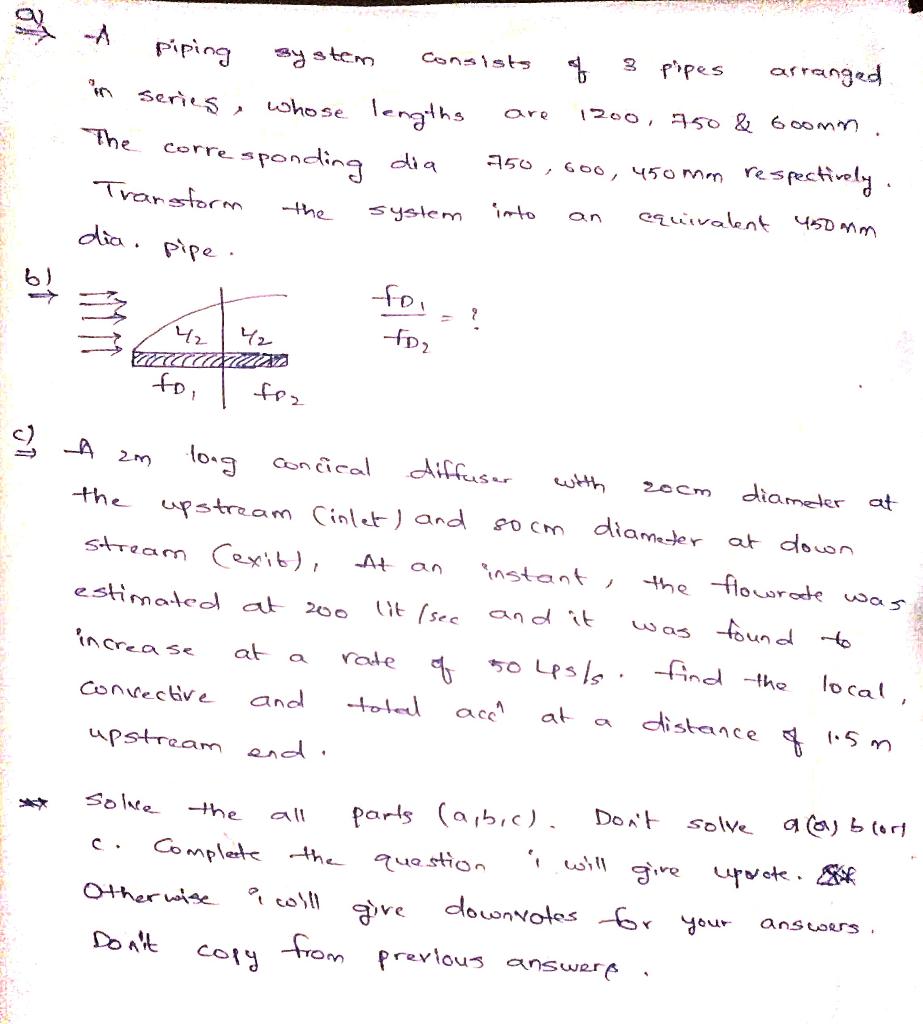 a) A piping system consists of 3 pipes arranged
in series, whose lengths are 1200, 750 & 600mm.
The corresponding dia 750, 600, 450mm respectively.
Transform the system into an equivalent 450mm
dia. pipe.
b)
L/2 L/2
fD1 fD2
fD1/fD2 = ?
c) A 2m long concical diffuser with 20cm diameter at
the upstream (inlet) and 80cm diameter at down
stream (exit), At an instant, the flowrate was
estimated at 200 lit/sec and it was found to
increase at a rate of 50 Lps/s. find the local,
convective and total accn at a distance of 1.5m
upstream end.
** solve the all parts (a,b,c). Don't solve a (or) b (or)
c. Complete the question i will give upvote.
Otherwise i will give downvotes for your answers.
Don't copy from previous answers.